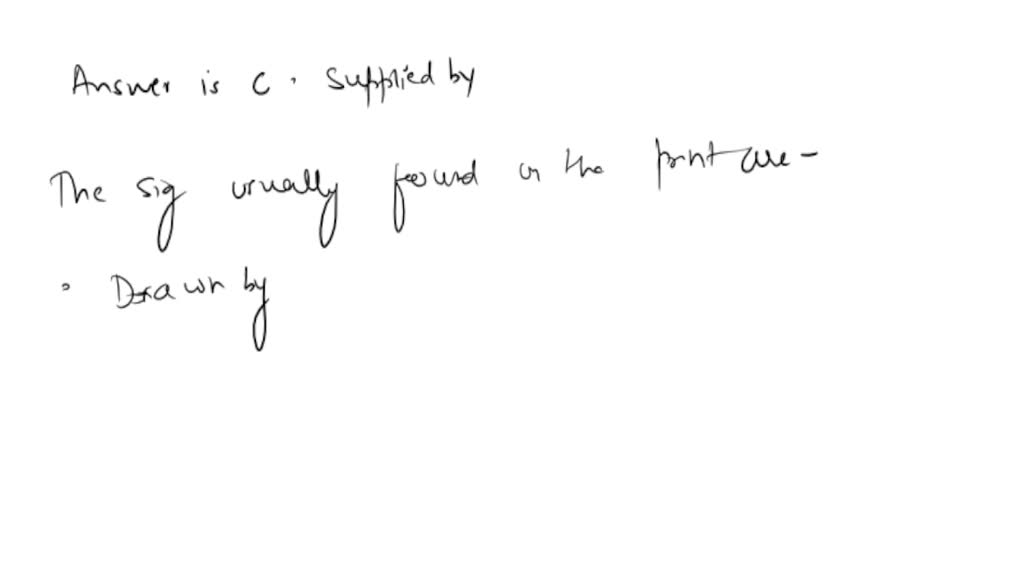 Answer is C. Supplied by
The sig usually found in the print are -
• Drawn by